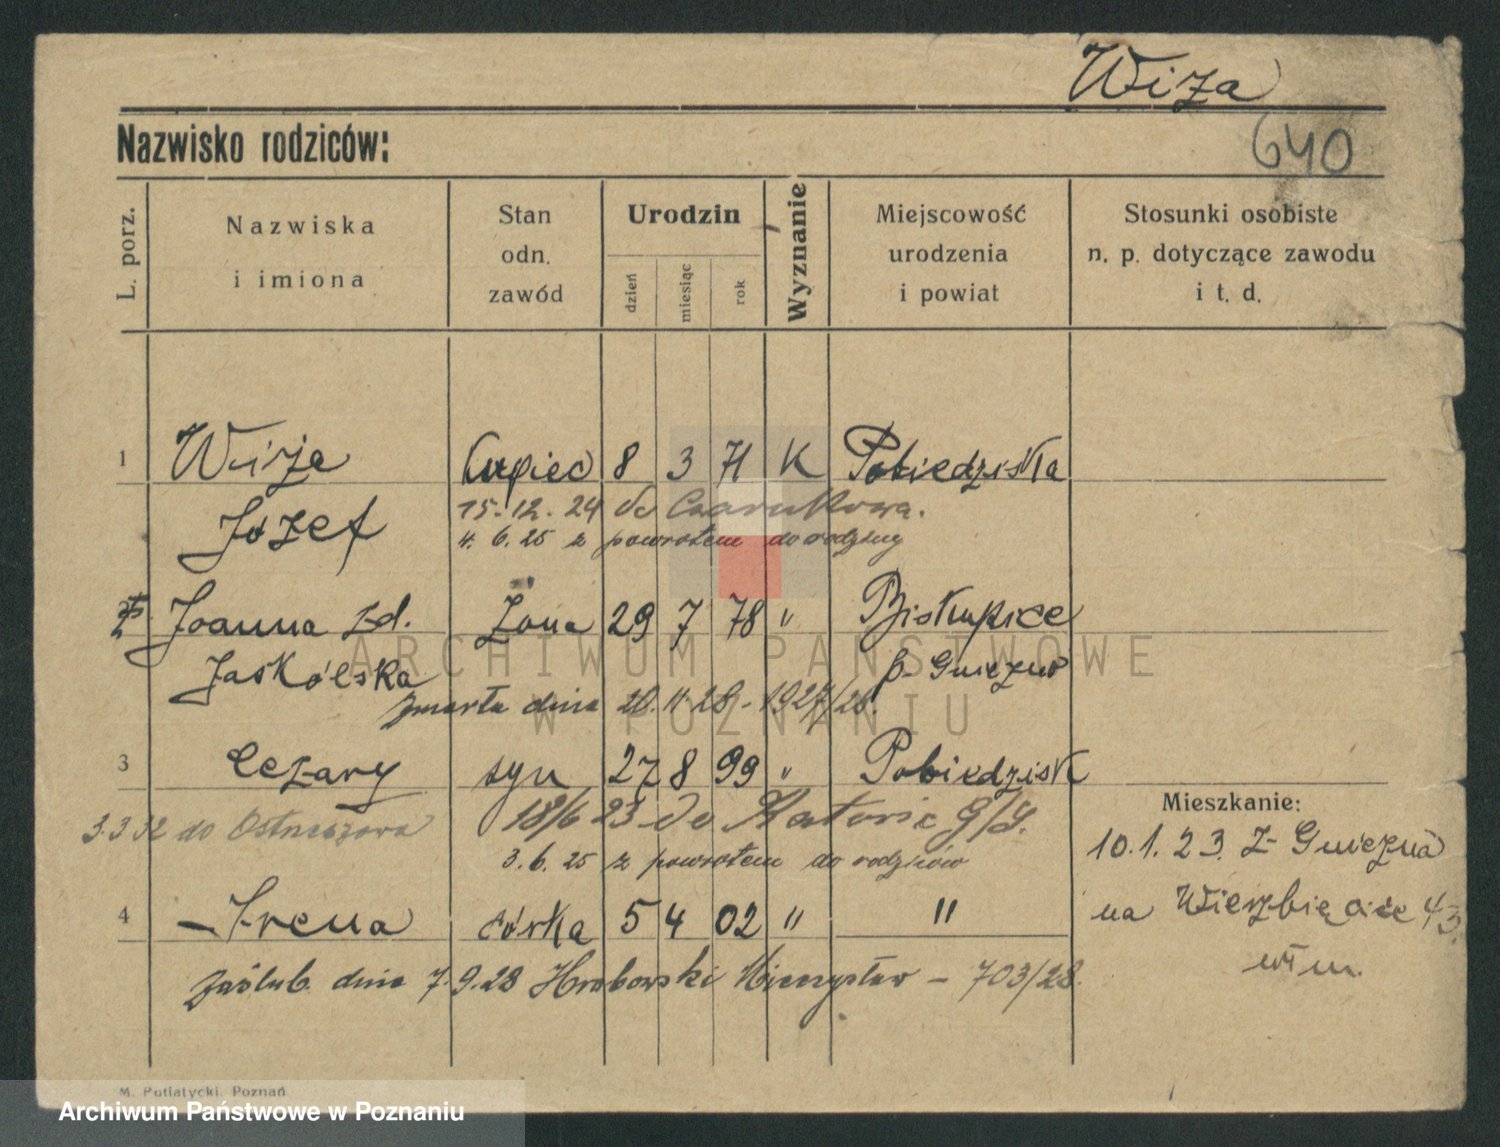 Wiza
Nazwisko rodziców:
640
L. porz.
Nazwiska
i imiona
Stan
odn.
zawód
Urodzin
dzień
miesiąc
rok
Wyznanie
Miejscowość
urodzenia
i powiat
Stosunki osobiste
n. p. dotyczące zawodu
i t. d.
1 Wiza kupiec 8 3 71 K Pobiedziska
Józef 15.12.24 do Czarnkowa.
4. 6. 25 z powrotem do rodziny
2 Joanna zd. Żona 29 7 78 " Biskupice
Jaskólska p. Gniezno
zmarła dnia 20.11.28 - 1927/28.
3 Cezary syn 27 8 99 " Pobiedzisk
3.3.32 do Ostrzeszowa 18/6 23 do Katowic G/S.
3. 6. 25 z powrotem do rodziców
4 - Irena córka 5 4 02 " "
zaślub. dnia 7.9.28 Hrabowski Mieczysław - 703/28.
Mieszkanie:
10.1.23. Z Gniezna
na Wierzbięcice 43.
ARCHIWUM PAŃSTWOWE
W POZNANIU
M. Putiatycki, Poznań
Archiwum Państwowe w Poznaniu